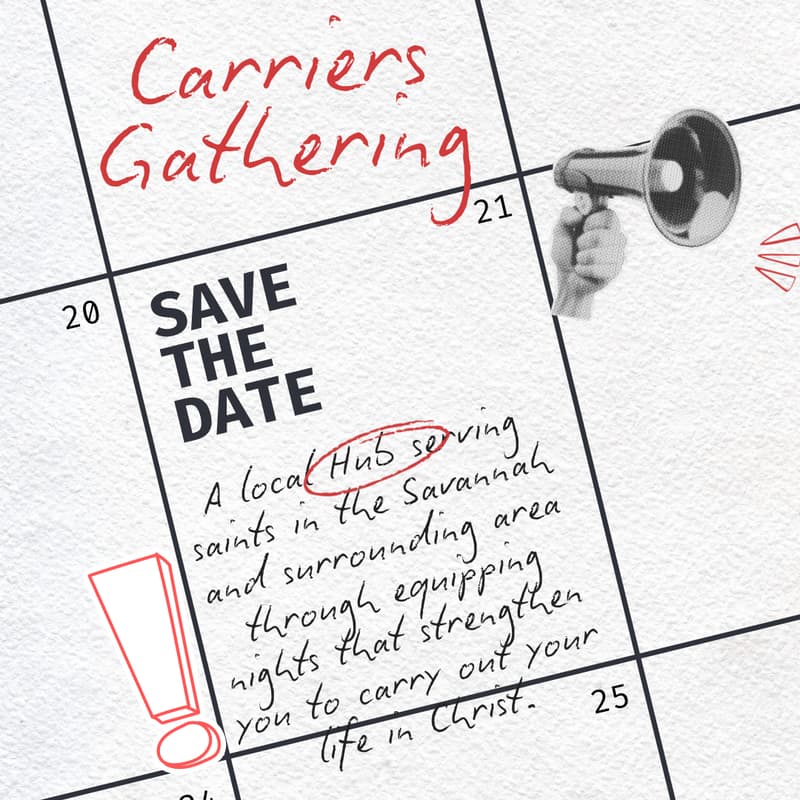 Carriers
Gathering
21
20
SAVE
THE
DATE
A local Hub serving
saints in the Savannah
and surrounding area
through equipping
nights that strengthen
you to carry out your
life in Christ.
25